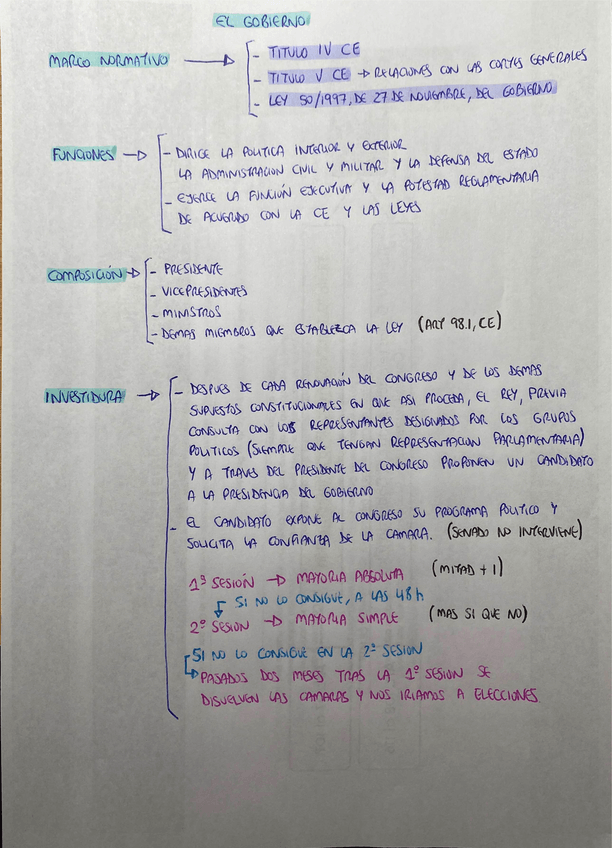 EL GOBIERNO
MARCO NORMATIVO →
- TITULO IV CE
- TITULO V CE → RELACIONES CON LAS CORTES GENERALES
- LEY 50/1997, DE 27 DE NOVIEMBRE, DEL GOBIERNO
FUNCIONES →
- DIRIGE LA POLITICA INTERIOR Y EXTERIOR
LA ADMINISTRACION CIVIL Y MILITAR Y LA DEFENSA DEL ESTADO
- EJERCE LA FUNCIÓN EJECUTIVA Y LA POTESTAD REGLAMENTARIA
DE ACUERDO CON LA CE Y LAS LEYES
COMPOSICIÓN →
- PRESIDENTE
- VICEPRESIDENTES
- MINISTROS
- DEMAS MIEMBROS QUE ESTABLEZCA LA LEY (ART 98.1, CE)
INVESTIDURA →
- DESPUES DE CADA RENOVACIÓN DEL CONGRESO Y DE LOS DEMAS
SUPUESTOS CONSTITUCIONALES EN QUE ASI PROCEDA, EL REY, PREVIA
CONSULTA CON LOS REPRESENTANTES DESIGNADOS POR LOS GRUPOS
POLITICOS (SIEMPRE QUE TENGAN REPRESENTACION PARLAMENTARIA)
Y A TRAVES DEL PRESIDENTE DEL CONGRESO PROPONEN UN CANDIDATO
A LA PRESIDENCIA DEL GOBIERNO
- EL CANDIDATO EXPONE AL CONGRESO SU PROGRAMA POLITICO Y
SOLICITA LA CONFIANZA DE LA CAMARA. (SENADO NO INTERVIENE)
1ª SESIÓN → MAYORIA ABSOLUTA (MITAD + 1)
SI NO LO CONSIGUE, A LAS 48 h
2º SESION → MAYORIA SIMPLE (MAS SI QUE NO)
SI NO LO CONSIGUE EN LA 2ª SESION
→ PASADOS DOS MESES TRAS LA 1º SESION SE
DISUELVEN LAS CAMARAS Y NOS IRIAMOS A ELECCIONES.